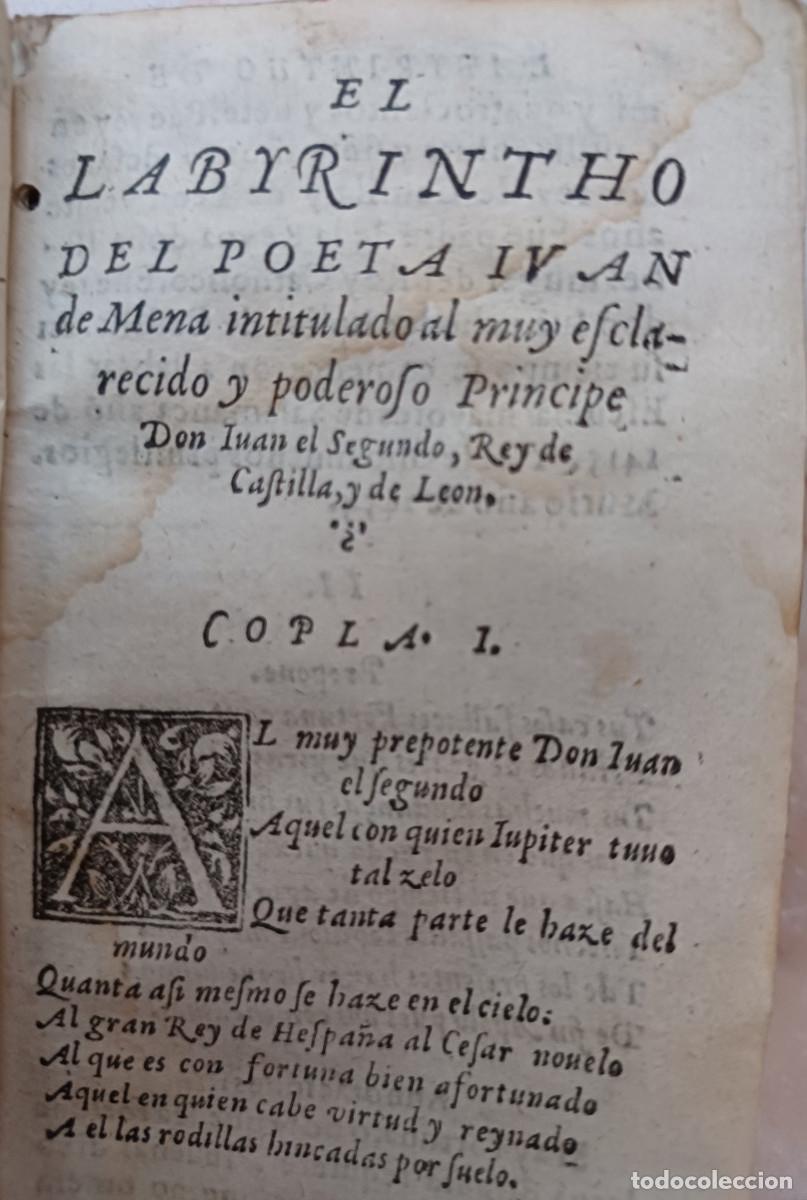 EL
LABYRINTHO
DEL POETA IVAN
de Mena intitulado al muy escla-
recido y poderoso Principe
Don Iuan el Segundo, Rey de
Castilla, y de Leon.
COPLA. I.
AL muy prepotente Don Iuan
el segundo
Aquel con quien Iupiter tuuo
tal zelo
Que tanta parte le haze del
mundo
Quanta asi mesmo se haze en el cielo:
Al gran Rey de Hespaña al Cesar nouelo
Al que es con fortuna bien afortunado
Aquel en quien cabe virtud y reynado
A el las rodillas hincadas por suelo.
todocoleccion